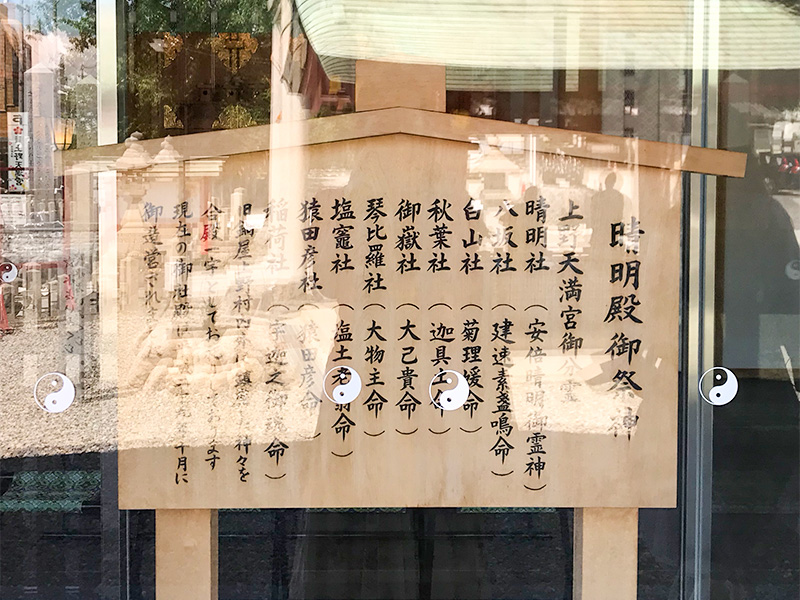 晴明殿御祭神
上野天満宮御分霊
晴明社（安倍晴明御霊神）
八坂社（建速素盞鳴命）
白山社（菊理媛命）
秋葉社（迦具土命）
御嶽社（大己貴命）
琴比羅社（大物主命）
塩竈社（塩土老翁命）
猿田彦社（猿田彦命）
稲荷社（宇迦之御魂命）
旧鍋屋上野村内外に
神々を
合殿
現在の御社殿は
年十月に
御造営されました
上野天満宮